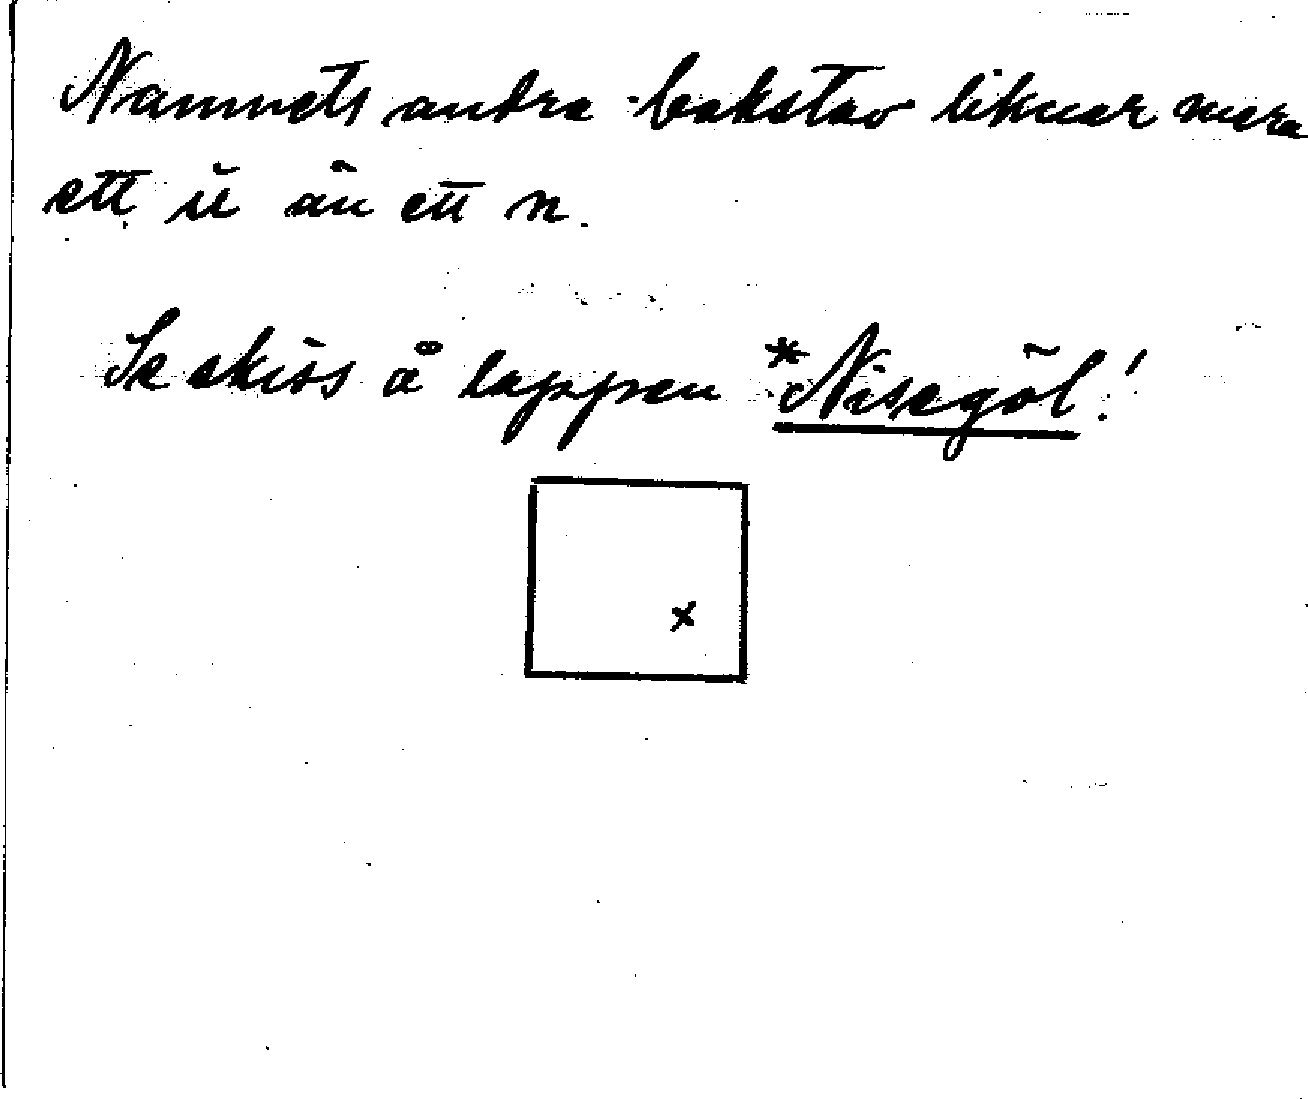 Namnets andra bokstav liknar mera
ett ŭ än ett n.
Se skiss å lappen *Nisegöl!
x